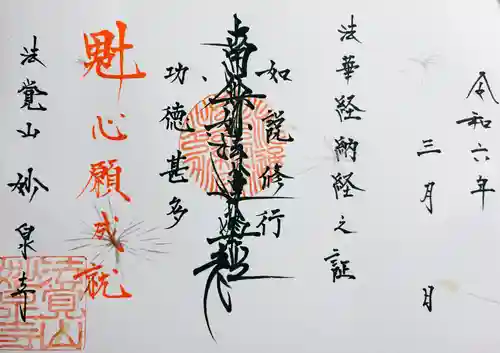 令和六年
三月 日
法華経納経之証
如説修行
南無妙法蓮華経
功徳甚多
魁 心願成就
法覚山 妙泉寺
法覚山
妙泉寺